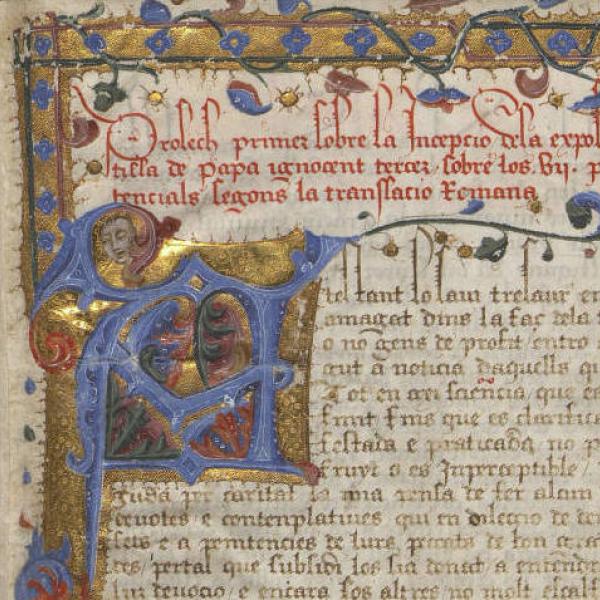 Prolech primer sobre la Incepcio dela expo
tilla de papa ignocent tercer sobre los .vij. p
tencials segons la translacio Romana
tel tant lo lau tresaur en
amagat dins la fac dela t
o no gens de profit entro
cut a noticia daquells qu
Tot en axi sciencia que es
fruit fins que es clarifica
festada e praticada no p
fruyt o es Inpreceptible
guda per caritat la mia pensa de fer alcun
deuotes e contemplatiues qui en dileccio de
fets e a penitencies de lurs peccats de bon
res / per tal que subsidi los sia donat a entendr
lur deuocio / e encara los altres no molt escalf